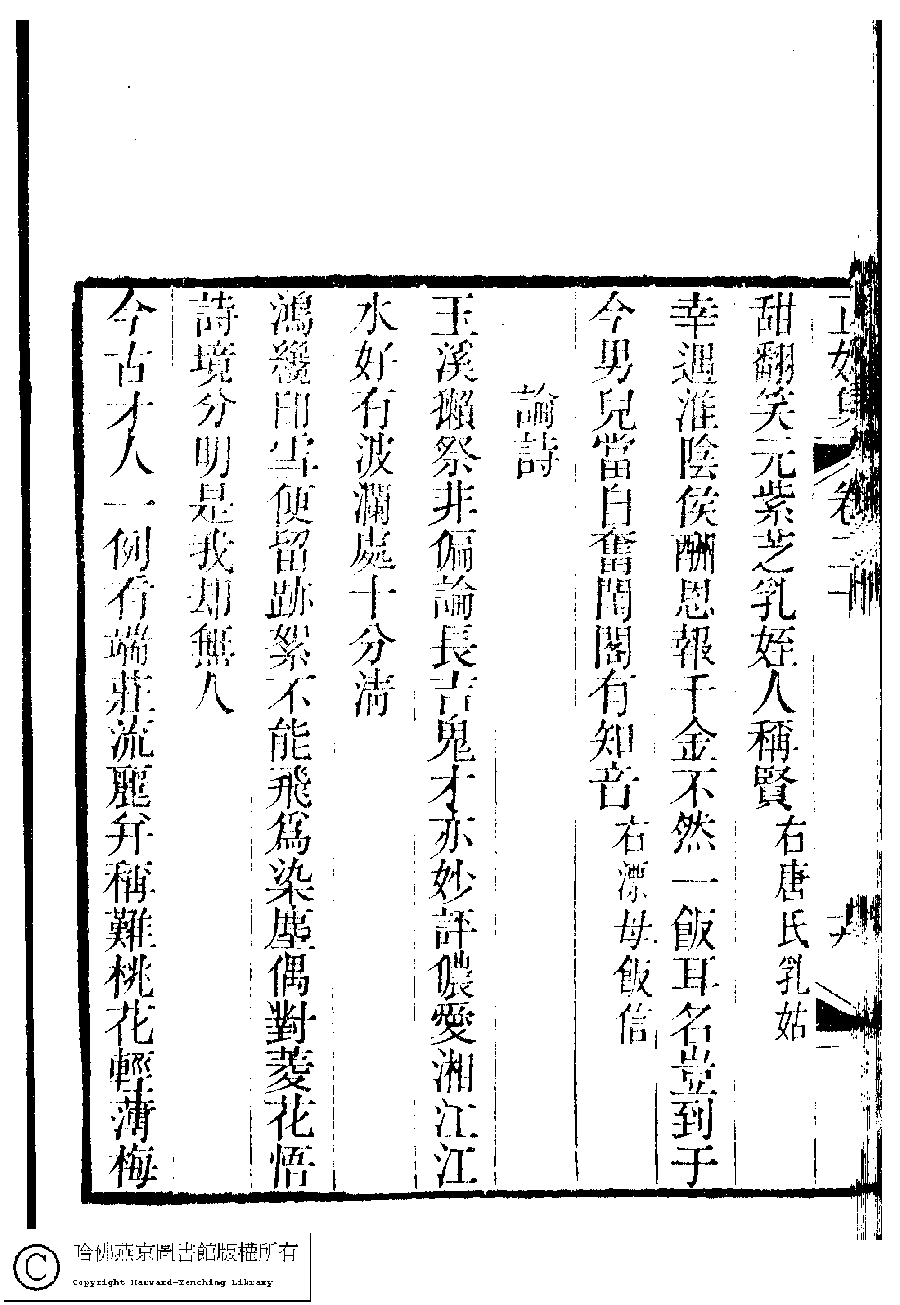 正始集 卷二十
甜翻笑元紫芝乳姪人稱賢右唐氏乳姑
幸遇淮陰侯酬恩報千金不然一飯耳名豈到于
今男兒當自奮閨閣有知音右漂母飯信
論詩
玉溪獺祭非偏論長吉鬼才亦妙評儂愛湘江江
水好有波瀾處十分清
鴻纔印雪便留跡絮不能飛爲染塵偶對菱花悟
詩境分明是我却無人
今古才人一例看端莊流麗弁稱難桃花輕薄梅
哈佛燕京圖書館版權所有
Copyright Harvard-Yenching Library